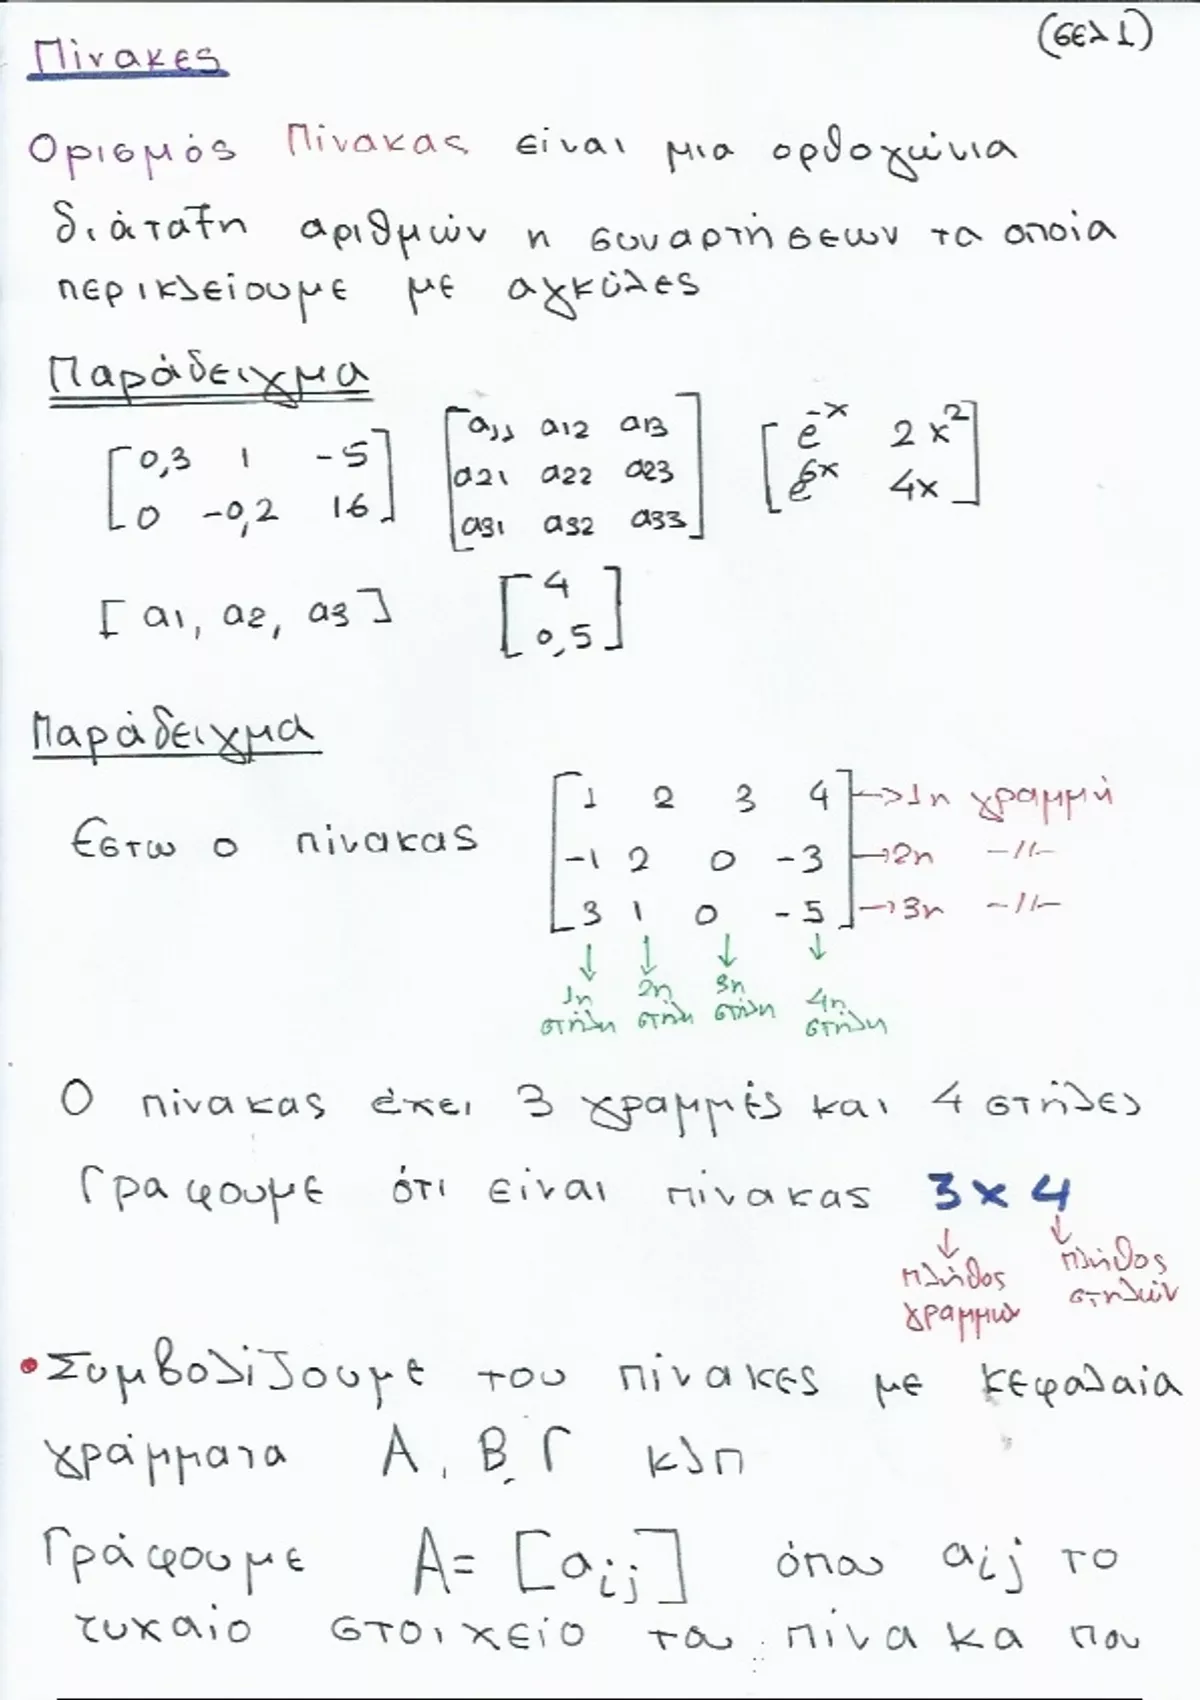 (σελ 1)
Πίνακες
Ορισμός Πίνακας είναι μια ορθογώνια
διάταξη αριθμών η συναρτήσεων τα οποία
περικλείουμε με αγκύλες
Παράδειγμα
[0,3 1 -5] [a11 a12 a13] [e^-x 2x^2]
[0 -0,2 16] [a21 a22 a23] [e^6x 4x]
[a31 a32 a33]
[a1, a2, a3] [4
0,5]
Παράδειγμα
[1 2 3 4] → 1η γραμμή
Εστω ο πίνακας [-1 2 0 -3] → 2η -//-
[3 1 0 -5] → 3η -//-
↓ ↓ ↓ ↓
1η 2η 3η 4η
στήλη στήλη στήλη στήλη
Ο πίνακας έχει 3 γραμμές και 4 στήλες
Γραφουμε ότι είναι πίνακας 3 x 4
↓ ↓
πλήθος πλήθος
γραμμων στηλών
• Συμβολίζουμε του πίνακες με κεφαλαια
γράμματα Α, Β, Γ κλπ
Γράφουμε A = [aij] όπου aij το
τυχαίο στοιχείο του πίνακα που